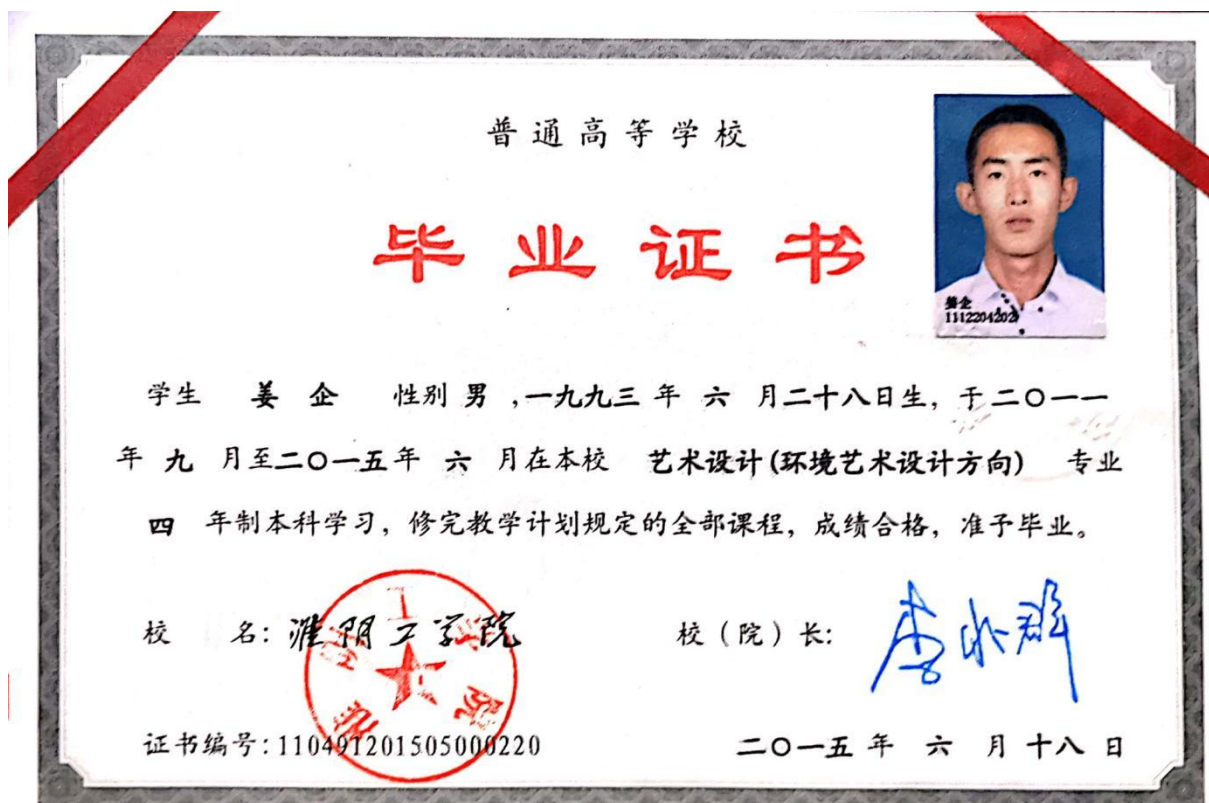 普通高等学校
毕业证书
姜企
1112204202
学生 姜企 性别 男 ,一九九三 年 六 月二十八日生，于二〇一一
年 九 月至二〇一五年 六 月在本校 艺术设计(环境艺术设计方向) 专业
四 年制本科学习，修完教学计划规定的全部课程，成绩合格，准予毕业。
校 名: 淮阴工学院 校（院）长:
淮阴工学院
证书编号: 110491201505000220 二〇一五 年 六 月 十八 日